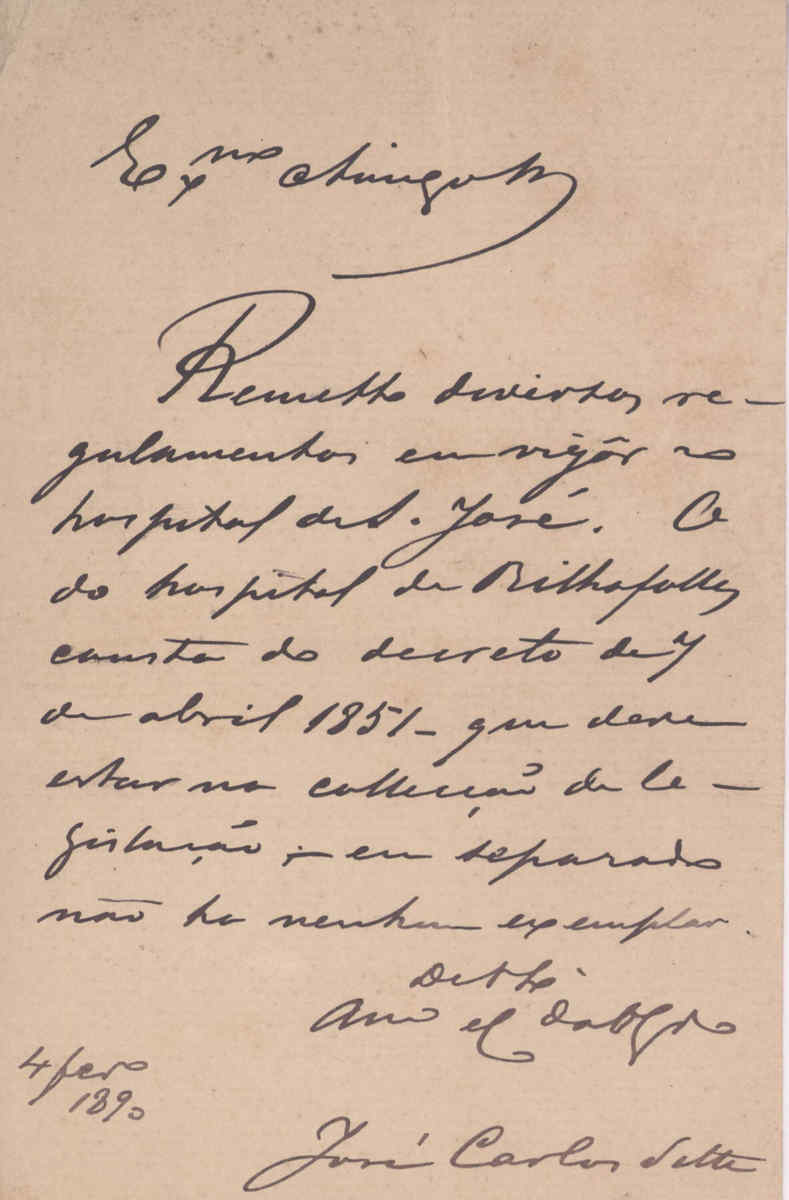 Exmo Amigo
Remetto diversos re-
gulamentos em vigôr no
hospital de S. José. O
do hospital de Rilhafolles
consta do decreto de 7
de abril 1851 - que deve
estar na collecção de le-
gislação ; - em separado
não ha nenhum exemplar.
De V. Exª
Amo
4 fevro
1890
José Carlos